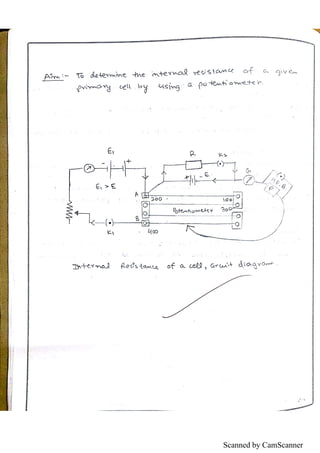 Aim:- To determine the internal resistance of a given
primary cell by using a potentiometer
E1
R
K2
+
E
G
E1 > E
A
200
100
Potentiometer 300
B
400
K1
Internal Resistance of a cell, Circuit diagram
Scanned by CamScanner